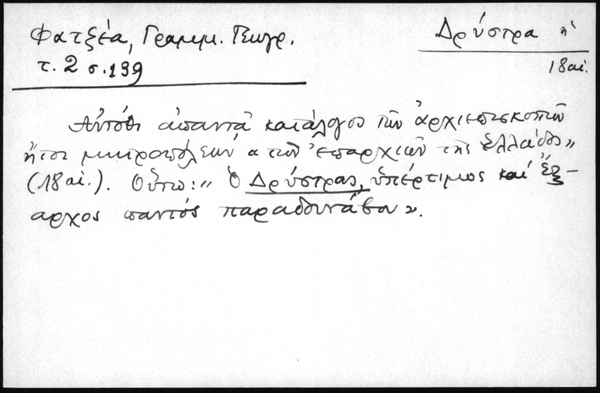 Φατζέα, Γραμμ. Γεωγρ.
τ. 2 σ. 139
Δρύστρα ἡ
18 αἰ.
Αὐτόθι ἀπαντᾷ κατάλογος τῶν ἀρχιεπισκοπῶν
ἤτοι μητροπόλεων τῶν ἐπαρχιῶν τῆς Ἑλλάδος»
(18 αἰ.). Οὕτω: „ Ὁ Δρύστρας, ὑπέρτιμος καὶ ἔξ-
αρχος παντὸς παραδουνάβου».